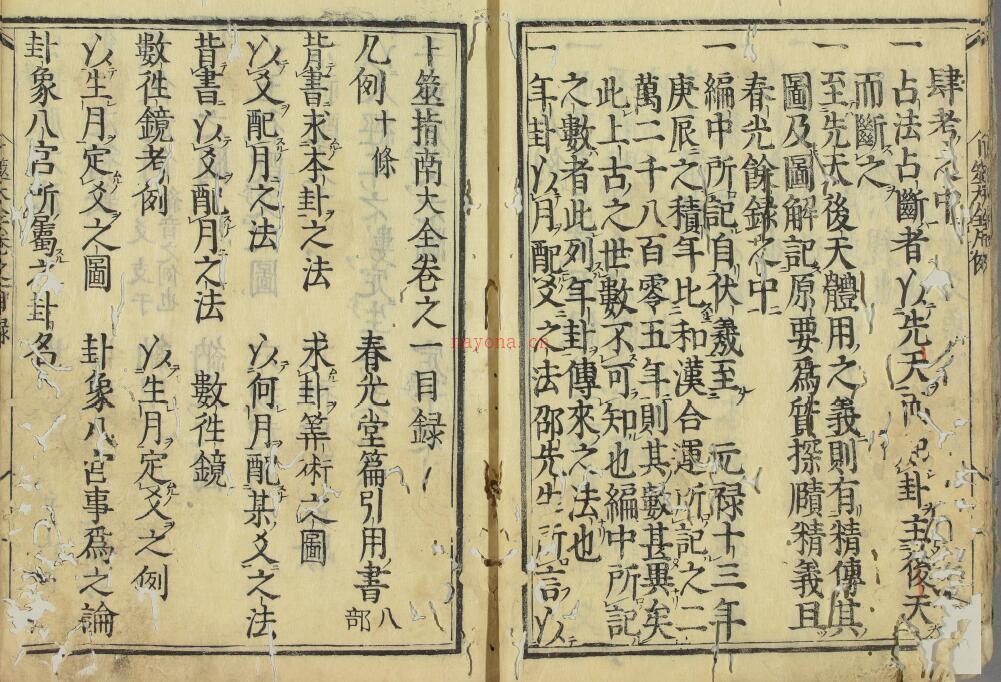 肆考之中
一 占法占斷者以先天而 卦主後天
而斷之
一 至先天後天體用之義則有精傳其
圖及圖解記原要爲質探賾精義且
春光餘録之中
一 編中所記自伏羲至 元禄十三年
庚辰之積年比和漢合運所記之二
萬二千八百零五年則其數甚異矣
此上古之世數不可知也編中所記
之數者此列年卦傳來之法也
一 年卦以月配爻之法邵先生所言以
卜筮指南大全卷之一目録
凡例 十條 春光堂篇引用書 八部
背書求本卦之法 求卦筭術之圖
以爻配月之法 以何月配某爻之法
背書以爻配月之法 數徃鏡
數徃鏡考例 以生月定爻之例
以生月定爻之圖 卦象八宮事爲之論
卦象八宮所屬之卦名
nayona.cn